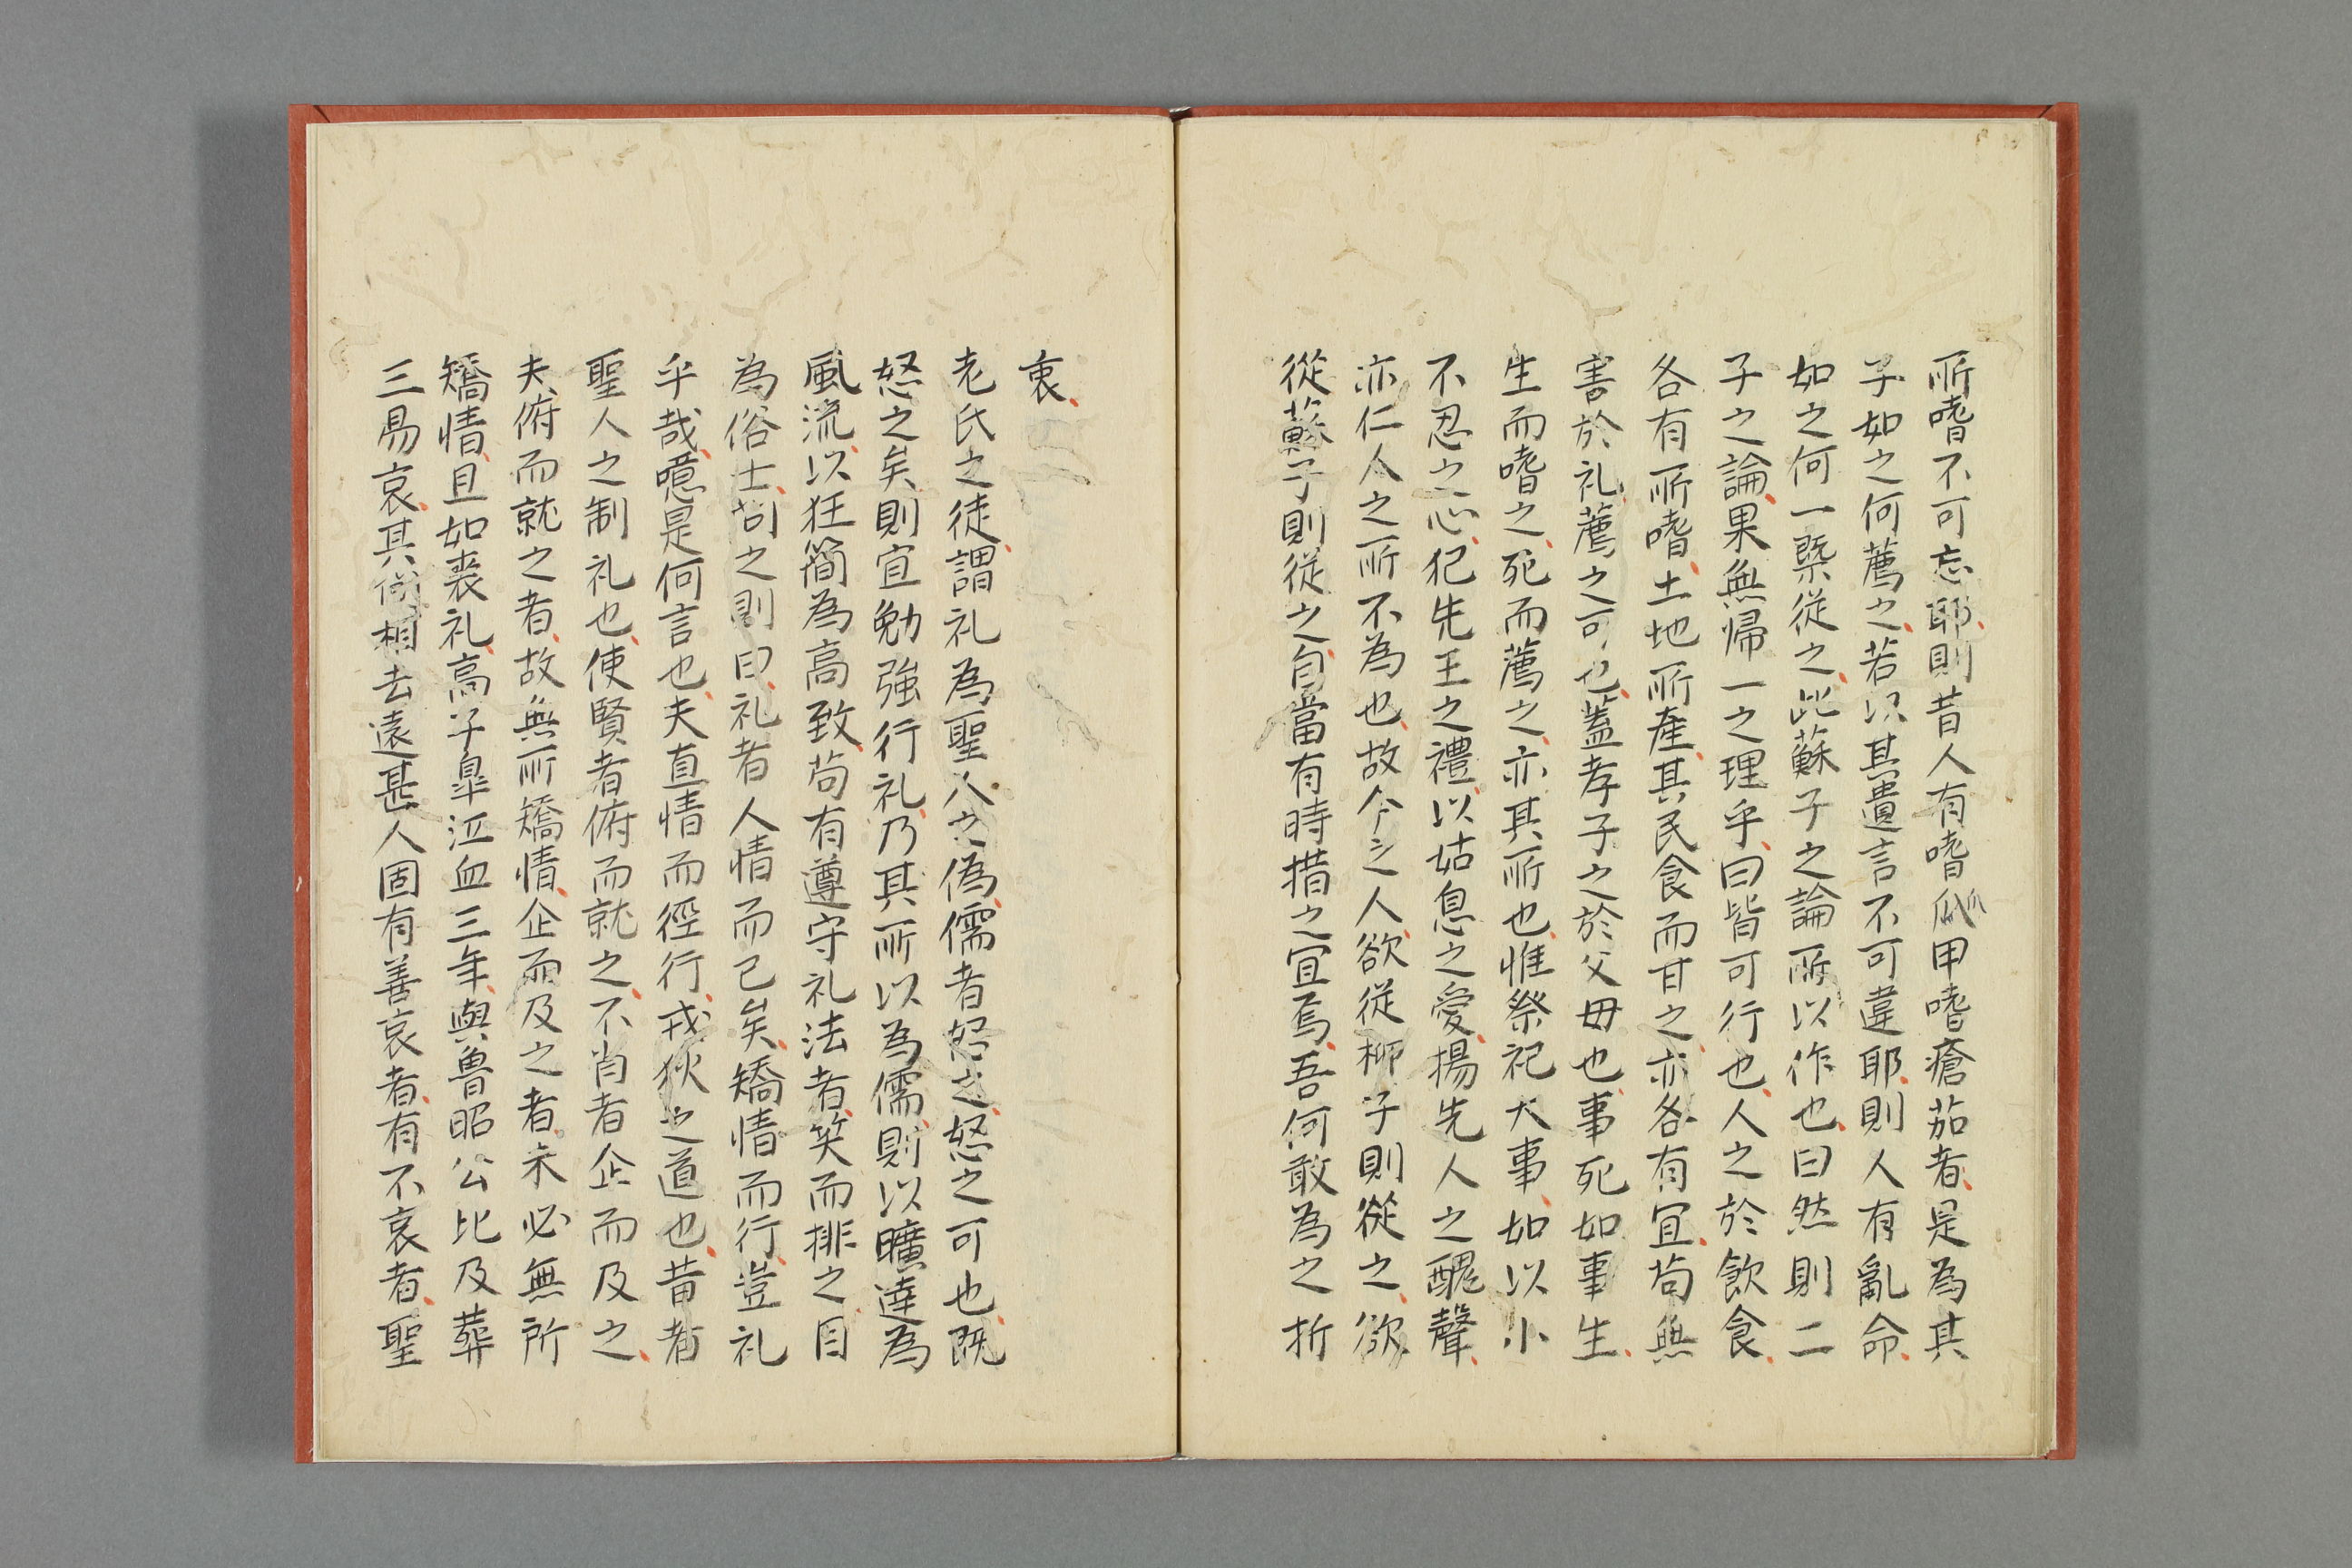 所嗜不可忘耶則昔人有嗜爪甲嗜瘡茄者是為其
子如之何薦之若以其遺言不可違耶則人有亂命
如之何一槩從之此蘇子之論所以作也曰然則二
子之論果無帰一之理乎曰皆可行也人之於飲食
各有所嗜土地所産其民食而甘之亦各有宜苟無
害於礼薦之可也蓋孝子之於父毋也事死如事生
生而嗜之死而薦之亦其所也惟祭祀大事如以小
不忍之心犯先王之禮以姑息之愛揚先人之醜聲
亦仁人之所不為也故今之人欲從柳子則從之欲
從蘇子則從之自當有時措之宜焉吾何敢為之折
衷
老氏之徒謂礼為聖人之偽儒者怒之怒之可也既
怒之矣則宜勉強行礼乃其所以為儒則以曠達為
風流以狂簡為高致苟有遵守礼法者笑而排之目
為俗士苟之則曰礼者人情而已矣矯情而行豈礼
乎哉噫是何言也夫直情而徑行戎狄之道也昔者
聖人之制礼也使賢者俯而就之不肖者企而及之
夫俯而就之者故無所矯情企而及之者未必無所
矯情且如喪礼高子皐泣血三年與魯昭公比及葬
三易哀其相去遠甚人固有善哀者有不哀者聖